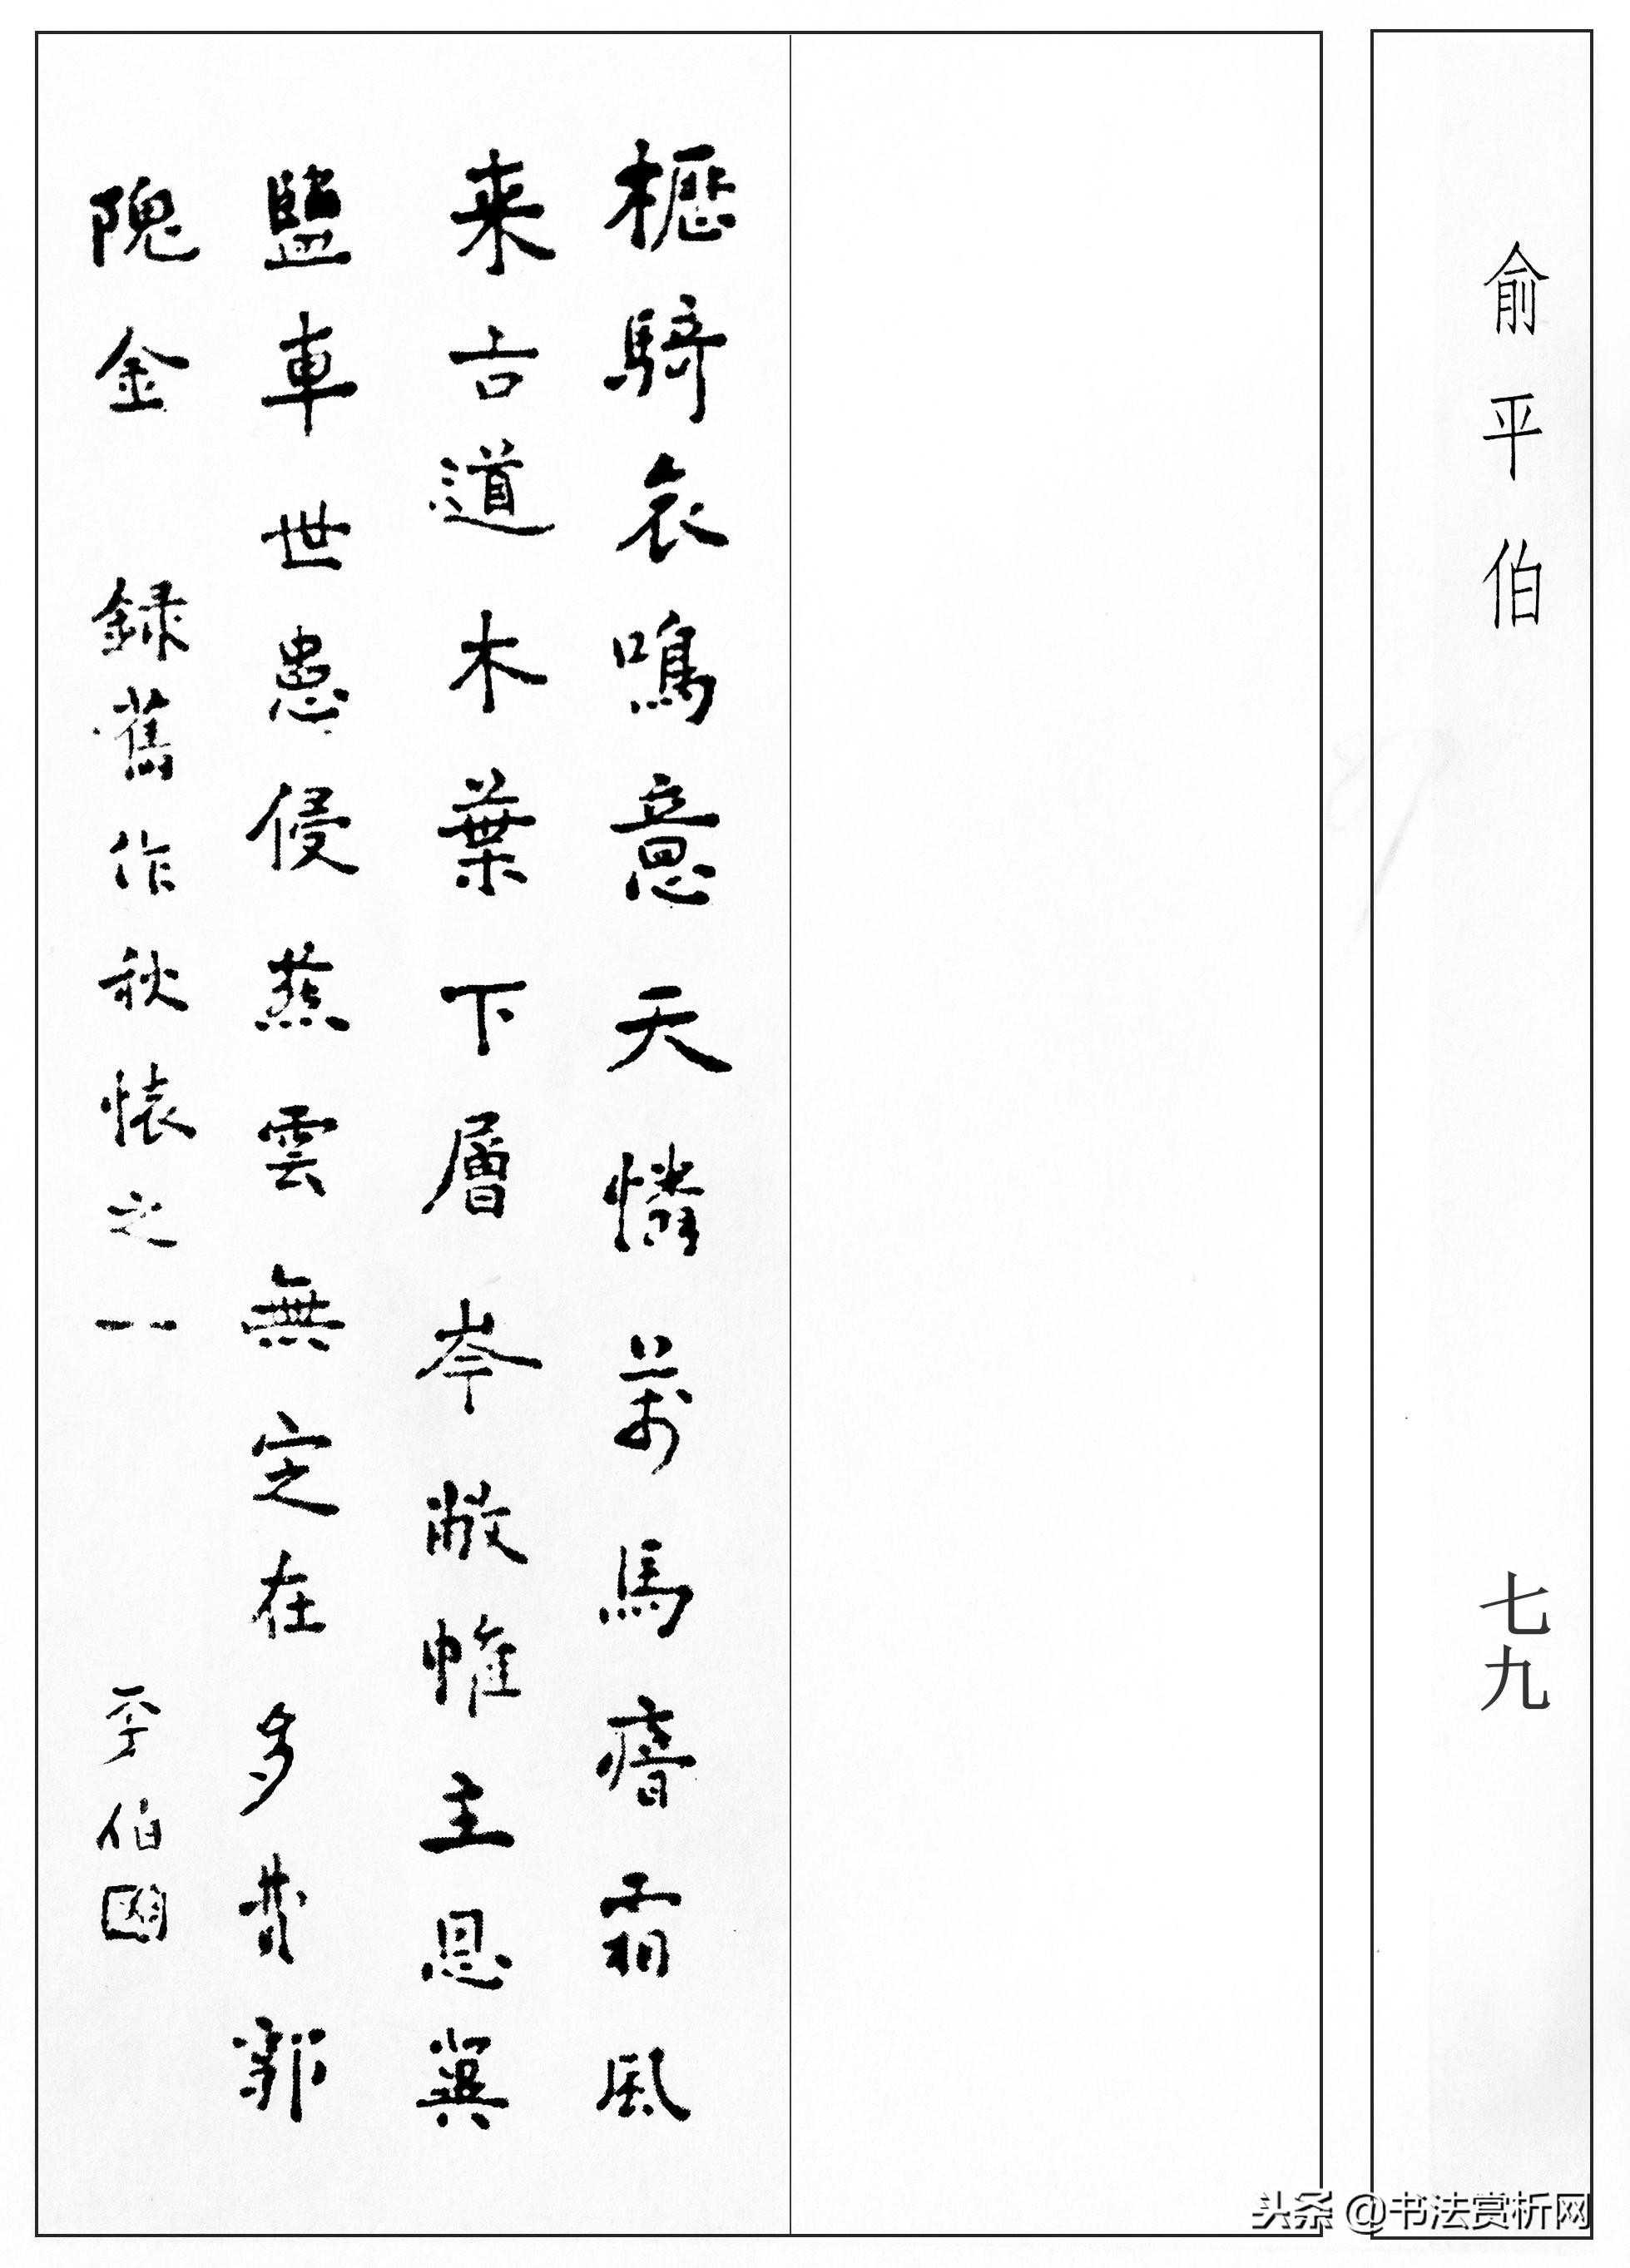 俞平伯
七九
櫪騎哀鳴意天憐萬馬瘖霜風
来古道木葉下層岑敝帷主恩冀
鹽車世患侵燕雲無定在多費郭
隗金 録舊作秋懷之一 平伯
头条 @书法赏析网